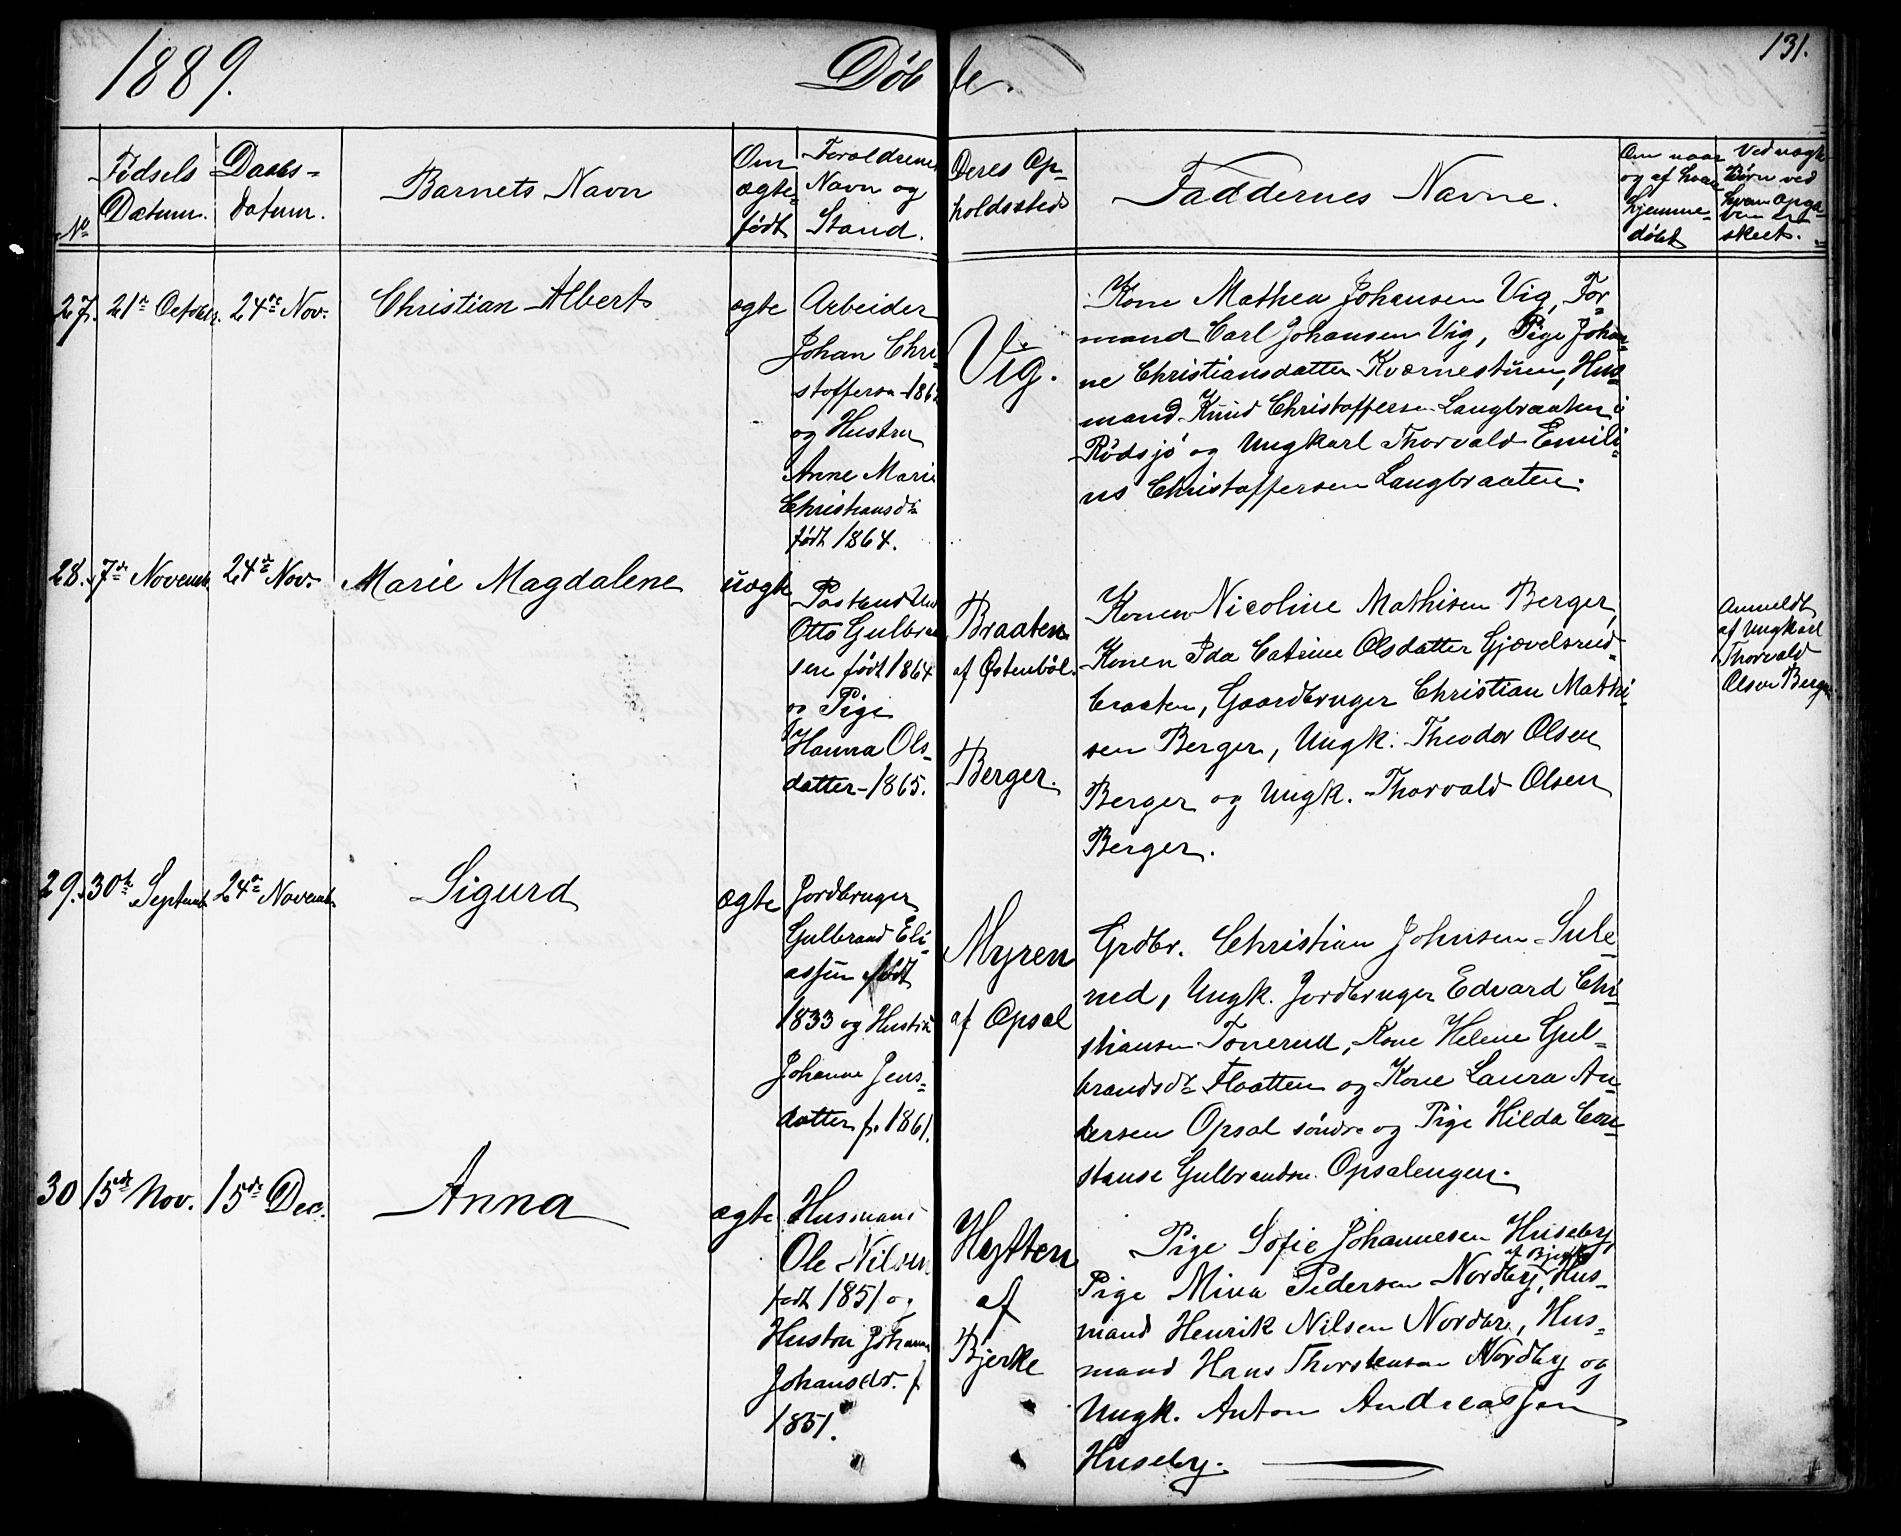 1889.
Døbte.
131.
No
Fødsels
Datum.
Daabs-
datum.
Barnets Navn
Om
ægte-
født
Foraldrenes
Navn og
Stand.
Deres Op-
holdssted
Faddernes Navne.
Om naar
og af hvem
hjemme-
døbt
Ved uægte
Børn ved
hvem Opga-
ven er
skeet.
27. 21de October. 24de Nov. Christian Albert ægte
Arbeider
Johan Chri-
stoffersen
og Hustru
Anne Marie
Christiansdtr
født 1864.
Vig.
Kone Mathea Johansen Vig, For-
mand Carl Johansen Vig, Pige Johan-
ne Christiansdatter Kværnestuen, Hus-
mand Knud Christoffersen Langbraaten i
Rødsjø og Ungkarl Thorvald Emili-
us Christoffersen Langbraaten.
28. 7de Novemb. 24de Nov. Marie Magdalene uægte
Otto Gulbrand-
sen født 1864
og Pige
Hanna Ols-
datter - 1865.
Braaten
af Østenbøl.
Berger.
Konen Nicoline Mathisen Berger,
Konen Ida Catrine Olsdatter Gjævelsrud-
braaten, Gaardbruger Christian Mathi-
sen Berger, Ungk. Theodor Olsen
Berger og Ungk. Thorvald Olsen
Berger.
Anmeldt
af Ungkarl
Thorvald
Olsen Berger
29. 30te Septemb. 24de Novemb. Sigurd ægte
Jordbruger
Gulbrand Eli-
assen født
1833 og Hustru
Johanne Jens-
datter f. 1861.
Myren
af Opsal
Grdbr. Christian Johnsen Sule-
rud, Ungk. Jordbruger Edvard Chri-
stiansen Tonerud, Kone Helene Gul-
brandsdtr Flaatten og Kone Laura An-
dersen Opsal søndre og Pige Hilda Con-
stanse Gulbrandsen Opsalengen.
30 15de Nov. 15de Dec. Anna ægte
Husmand
Ole Nilsen
født 1851 og
Hustru Johanne
Johansdr. f.
1851.
Hytten
af
Bjerke
Pige Sofie Johannesen Huseby,
af Bjerke
Pige Mina Pedersen Nordby, Hus-
mand Henrik Nilsen Nordbr., Hus-
mand Hans Thorstensen Nordby og
Ungk. Anton Andreassen
Huseby.